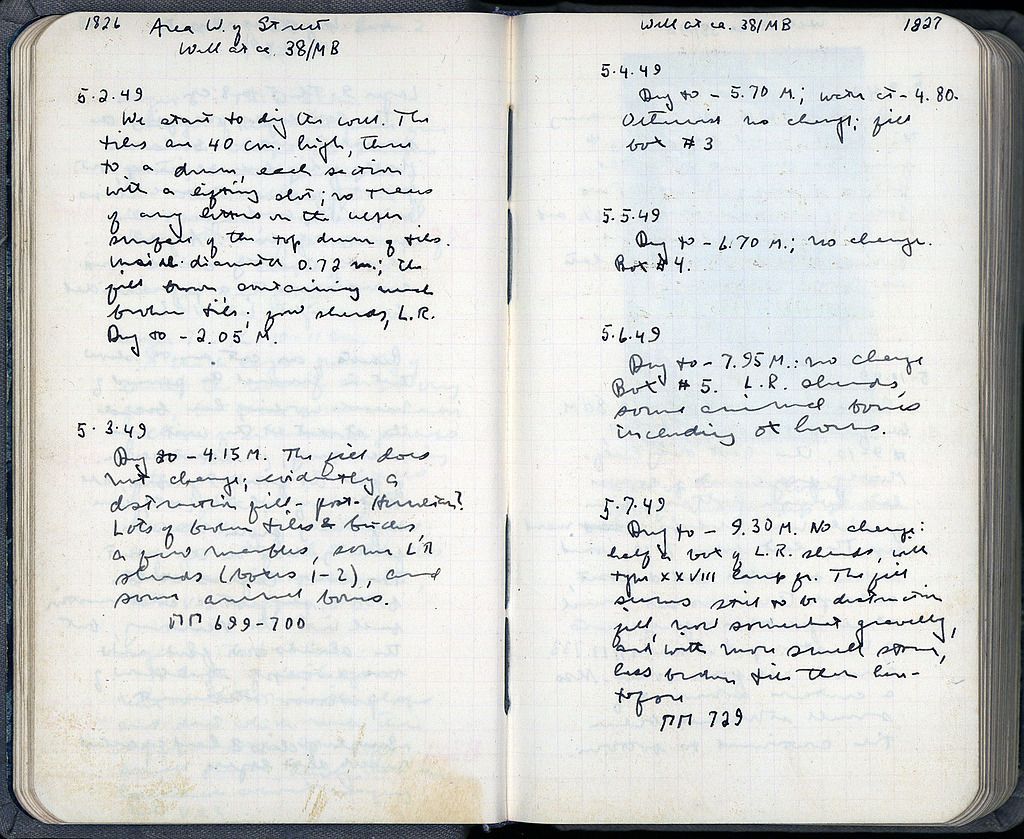 1826 Area W. of Street
Well at ca. 38/MB
5.2.49
We start to dig the well. The
tiles are 40 cm. high, three
to a drum, each section
with a lifting slot; no traces
of any letters on the upper
surface of the top drum of tiles.
Inside diameter 0.72 m.; the
fill brown containing much
broken tile; few sherds, L.R.
Dug to - 2.05 M.
5.3.49
Dug to - 4.15 M. The fill does
not change; evidently a
destruction fill - post-Herulian?
Lots of broken tiles & bricks
a few marbles, some L'R
sherds (boxes 1-2), and
some animal bones.
ΠΠ 699-700
Well at ca. 38/MB 1827
5.4.49
Dug to - 5.70 M.; water at - 4.80.
Otherwise no change; fill
box #3
5.5.49
Dug to - 6.70 M.; no change.
Box #4.
5.6.49
Dug to - 7.95 M.: no change
Box #5. L.R. sherds
some animal bones
including ox horns.
5.7.49
Dug to - 9.30 M. No change:
half a box of L.R. sherds, with
type XXVIII lamp fr. The fill
seems still to be destruction
fill, now somewhat gravelly,
and with more small stones,
less broken tiles than here-
tofore
ΠΠ 729